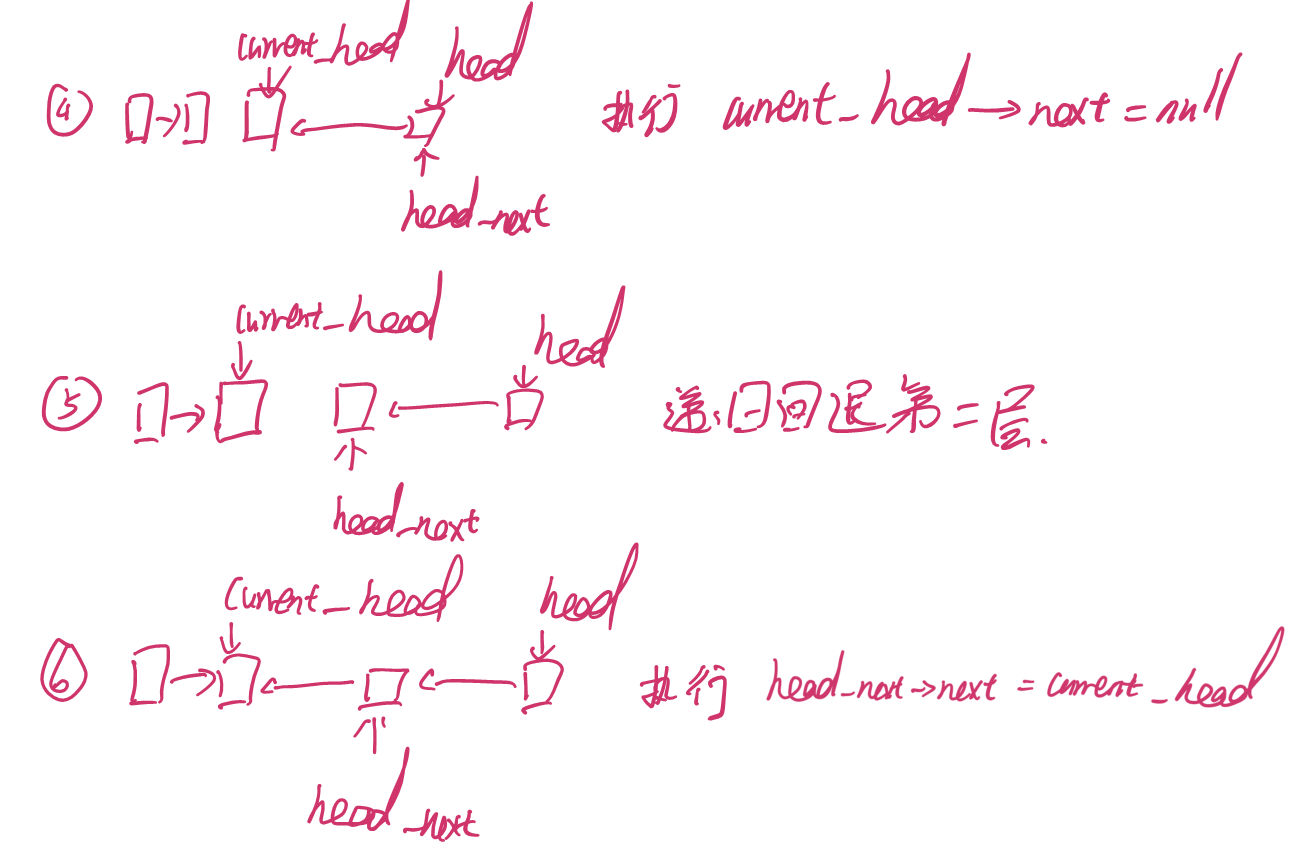 current_head
head
④ 执行 current_head→next = null
head_next
current_head
head
⑤ 递归回退第二层.
head_next
current_head
head
⑥ 执行 head_next→next = current_head
head_next